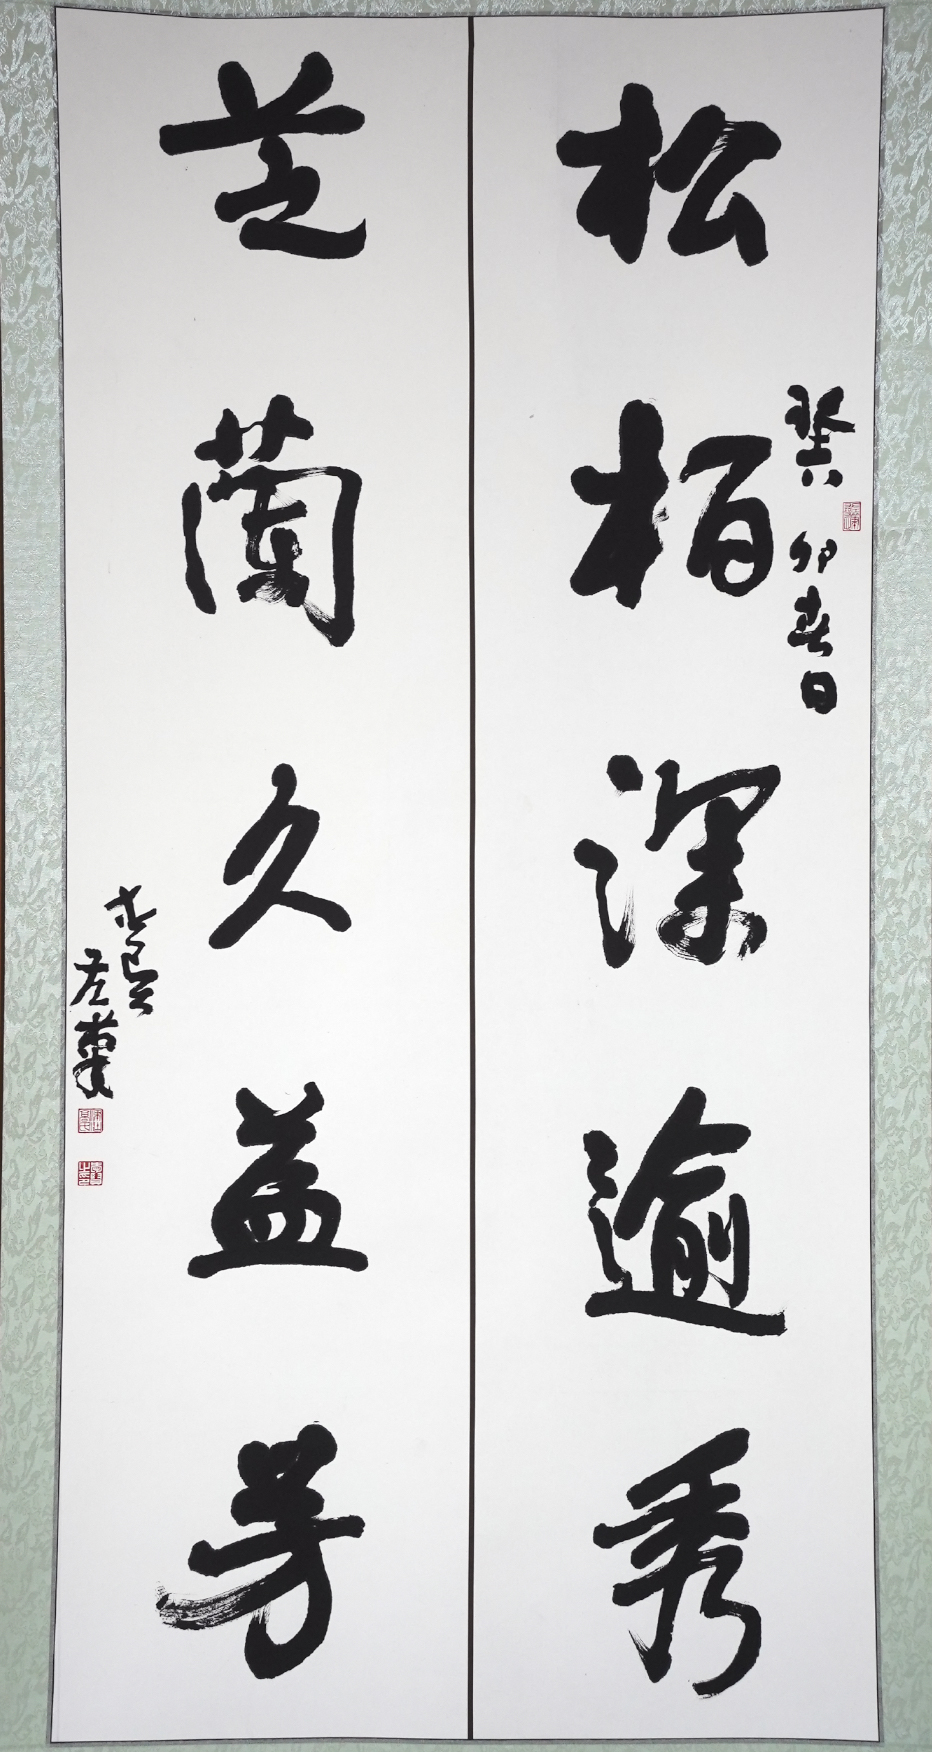 松柏深逾秀
癸卯春日
芝蘭久益芳